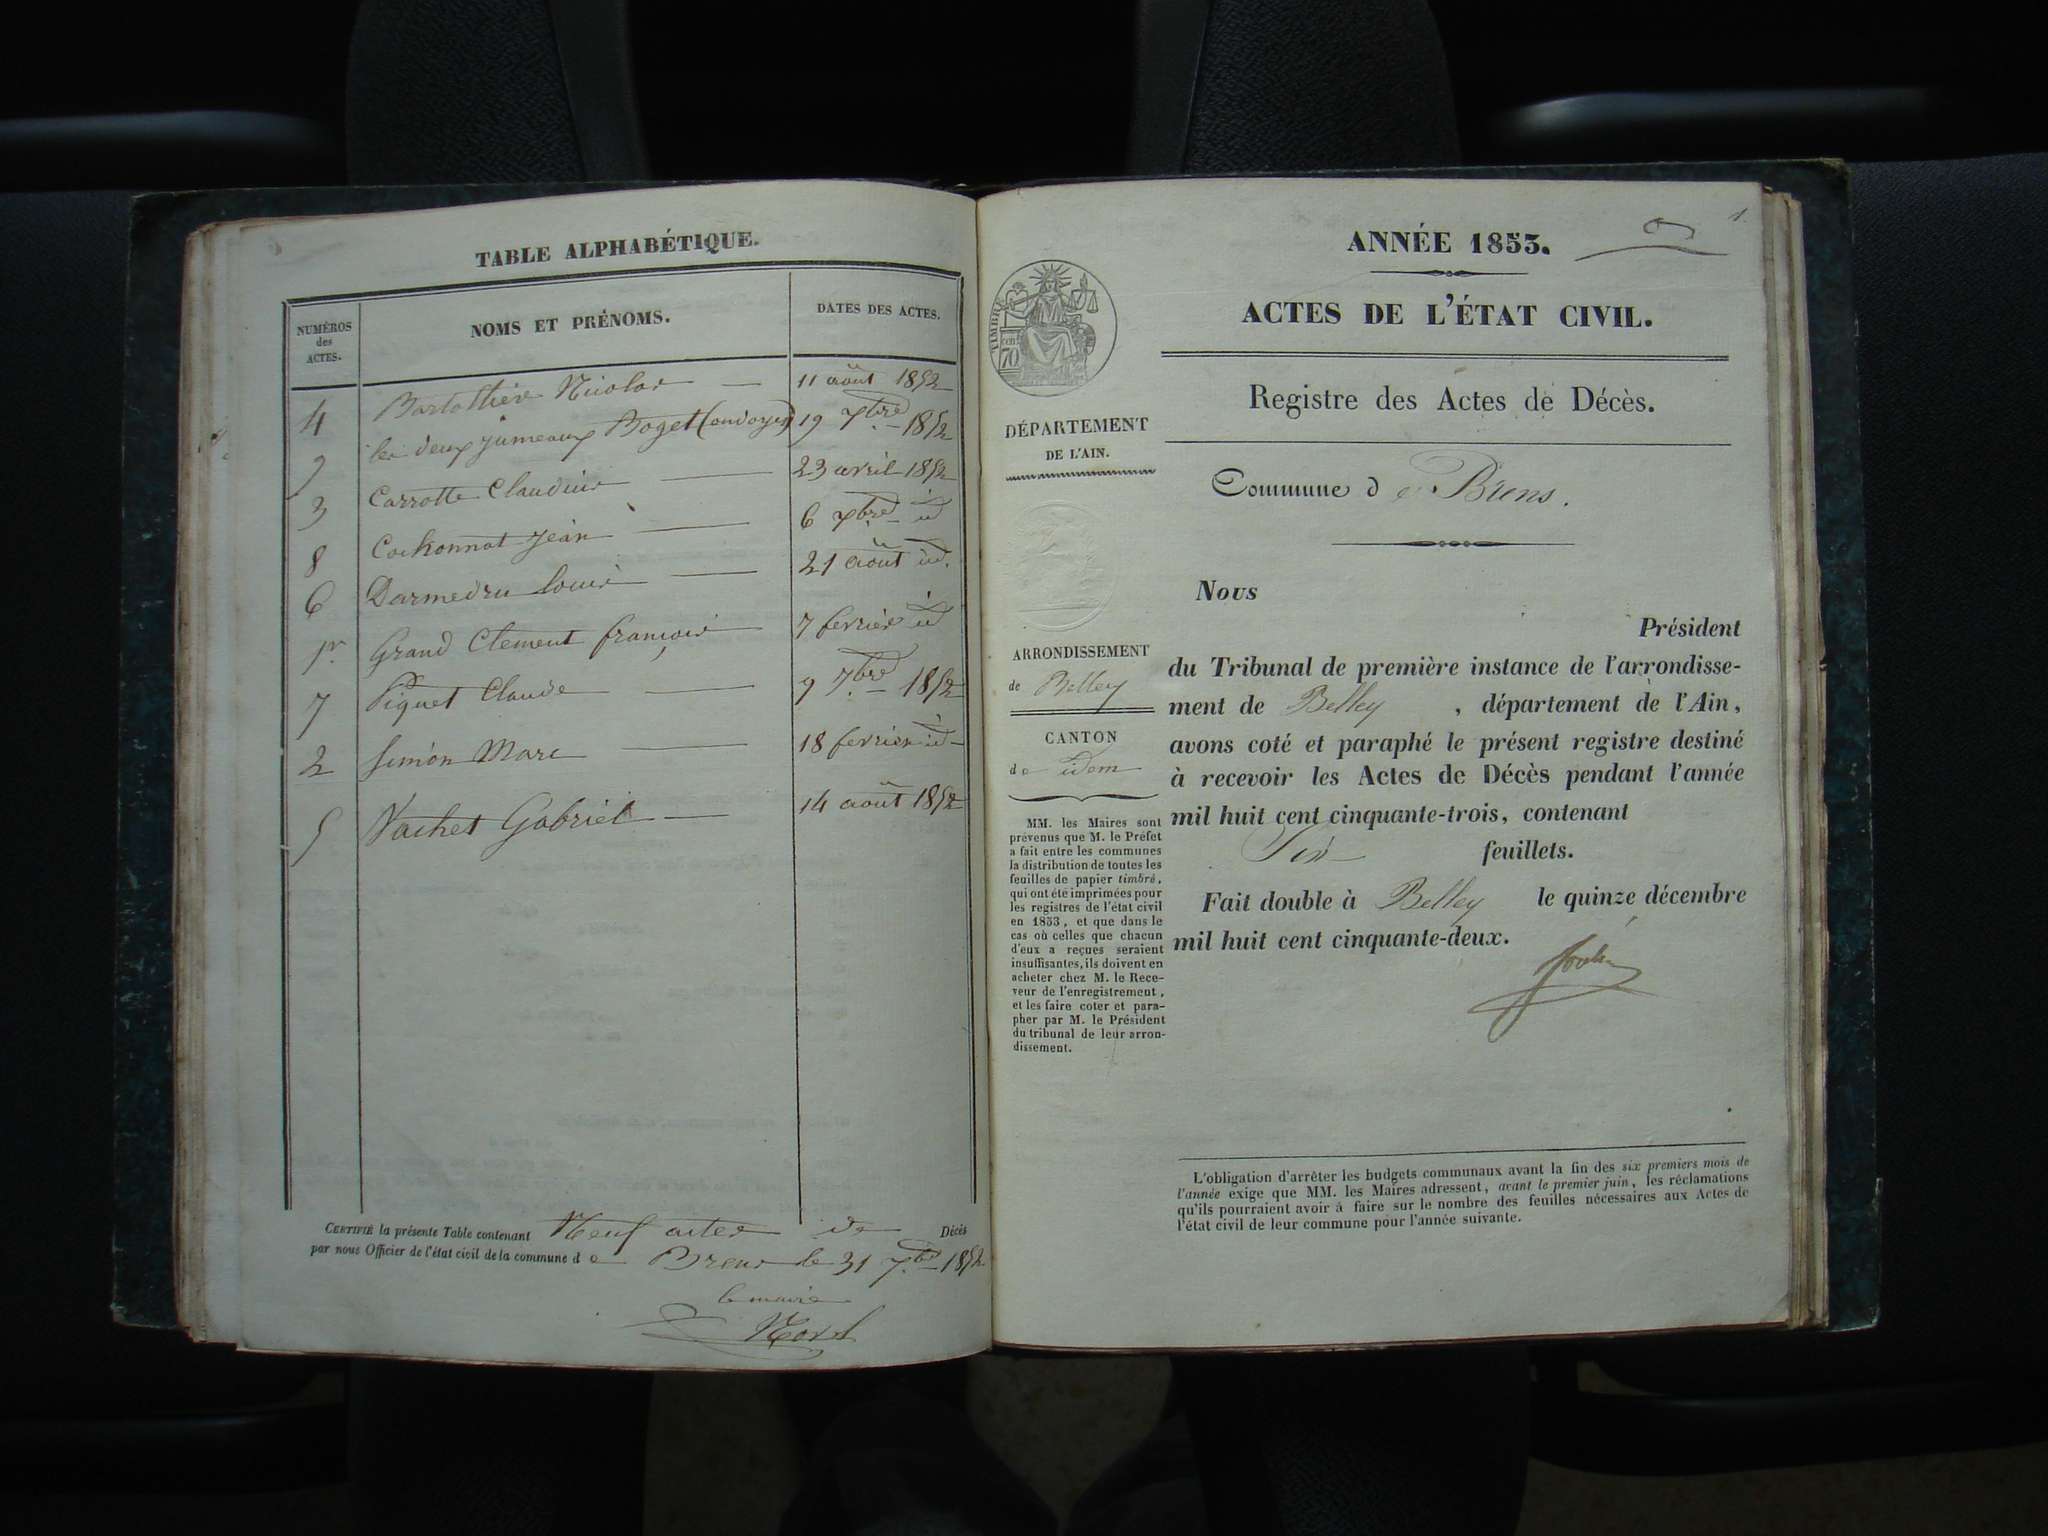 TABLE ALPHABÉTIQUE.
NUMÉROS des ACTES. NOMS ET PRÉNOMS. DATES DES ACTES.
4 Nicolas — 11 août 1852
9 les deux jumeaux Boget (ondoyés) 19 1852
3 Carrotte Claudine — 23 avril 1852
8 Jean — 6 id
6 Darmedru Louis — 21 août id.
1er Grand Clément françois — 7 fevrier id
7 Piquet Claude — 9 7bre 1852
2 Simon Marc — 18 fevrier id
5 Vachet Gabriel — 14 août 1852
CERTIFIÉ la présente Table contenant Neuf actes de Décès
par nous Officier de l'état civil de la commune de Brens le 31 1852
le maire
1.
ANNÉE 1853.
ACTES DE L'ÉTAT CIVIL.
Registre des Actes de Décès.
Commune de Brens.
TIMBRE
cen 70
DÉPARTEMENT
DE L'AIN.
ARRONDISSEMENT
de Belley
CANTON
de idem
MM. les Maires sont
prévenus que M. le Préfet
a fait entre les communes
la distribution de toutes les
feuilles de papier timbré,
qui ont été imprimées pour
les registres de l'état civil
en 1853, et que dans le
cas où celles que chacun
d'eux a reçues seraient
insuffisantes, ils doivent en
acheter chez M. le Rece-
veur de l'enregistrement,
et les faire coter et para-
pher par M. le Président
du tribunal de leur arron-
dissement.
NOUS
Président
du Tribunal de première instance de l'arrondisse-
ment de Belley, département de l'Ain,
avons coté et paraphé le présent registre destiné
à recevoir les Actes de Décès pendant l'année
mil huit cent cinquante-trois, contenant
Six feuillets.
Fait double à Belley le quinze décembre
mil huit cent cinquante-deux.
L'obligation d'arrêter les budgets communaux avant la fin des six premiers mois de
l'année exige que MM. les Maires adressent, avant le premier juin, les réclamations
qu'ils pourraient avoir à faire sur le nombre des feuilles nécessaires aux Actes de
l'état civil de leur commune pour l'année suivante.